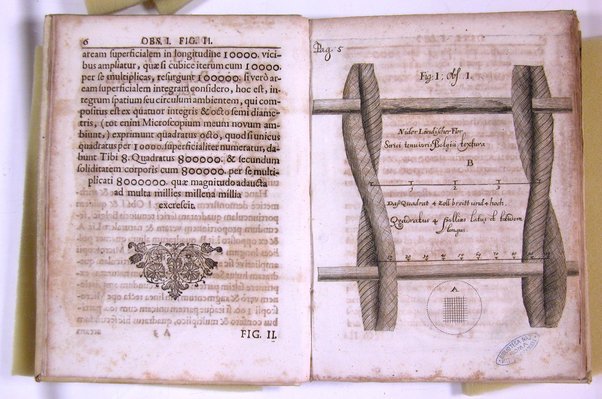 6 OBS. I. FIG. II.
aream superficialem in longitudine 10000. vici-
bus ampliatur, quæ si cubice iterum cum 10000.
per se multiplicas, resurgunt 100000. si verò are-
am superficialem integram considero, hoc est, in-
tegrum spatium seu circulum ambientem, qui com-
positus est ex quatuor integris & semi diame-
tris, (tot enim Microscopium meum novum am-
biunt,) exprimunt quadratus octo, quod si unicus
quadratus per 10000. superficialiter numeratur, da-
bunt Tibi 8. Quadratus 800000. & secundum
soliditatem corporis cum 800000. per se multi-
plicati 8000000. quæ magnitudo adaucta
ad multa millies millena millia
excrescit.
FIG. II.
Pag. 5
Fig: 1; Obs. 1.
Nider Ländischer Flor
Serici tenuioris Belgii textura
B
Daß Quadrat 4 Zoll breitt und 4 hoch.
Quadratus 4 pollices latus et totidem
longus
A